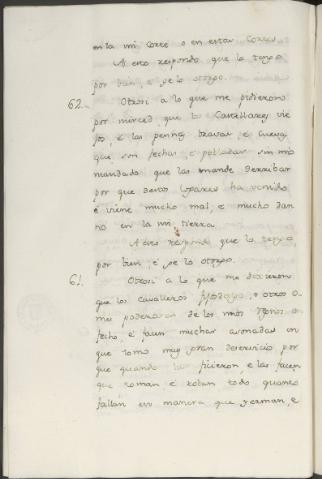 en la mi Corte o en estas Cortes
A esto respondo que lo tengo
por bien, e se lo otorgo.
62. Otrosi a lo que me pidieron
por merced que los Castellares vie
jos, e las peñas bravas e cuevas
que son fechas, e pobladas sin mio
mandado que las mande derribar
por que destos logares ha venido
e viene mucho mal, e mucho dan
no en la mi tierra.
A esto respondo que lo tengo
por bien, e se lo otorgo.
61. Otrosi a lo que me dixieron
que los cavalleros fijosdalgo, o otros o
mes poderosos de los mios regnos an
fecho, e facen muchas asonadas en
que tomo muy gran deservicio por
que quando las ficieron, e las facen
que toman, e roban todo quanto
fallan en manera que yerman, e